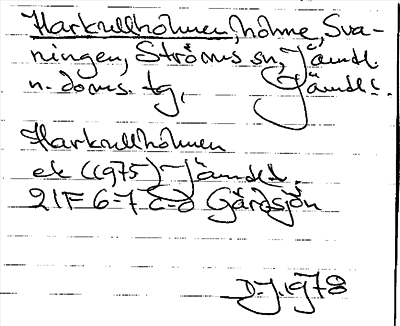 Harkrullholmen, holme, Sva-
ningen, Ströms sn, Jämtl.
n. doms. tg, Jämtl l.
Harkrullholmen
ek (1975) Jämtl l.
21F 6-7 c-d Gärdsjön
DJ 1978